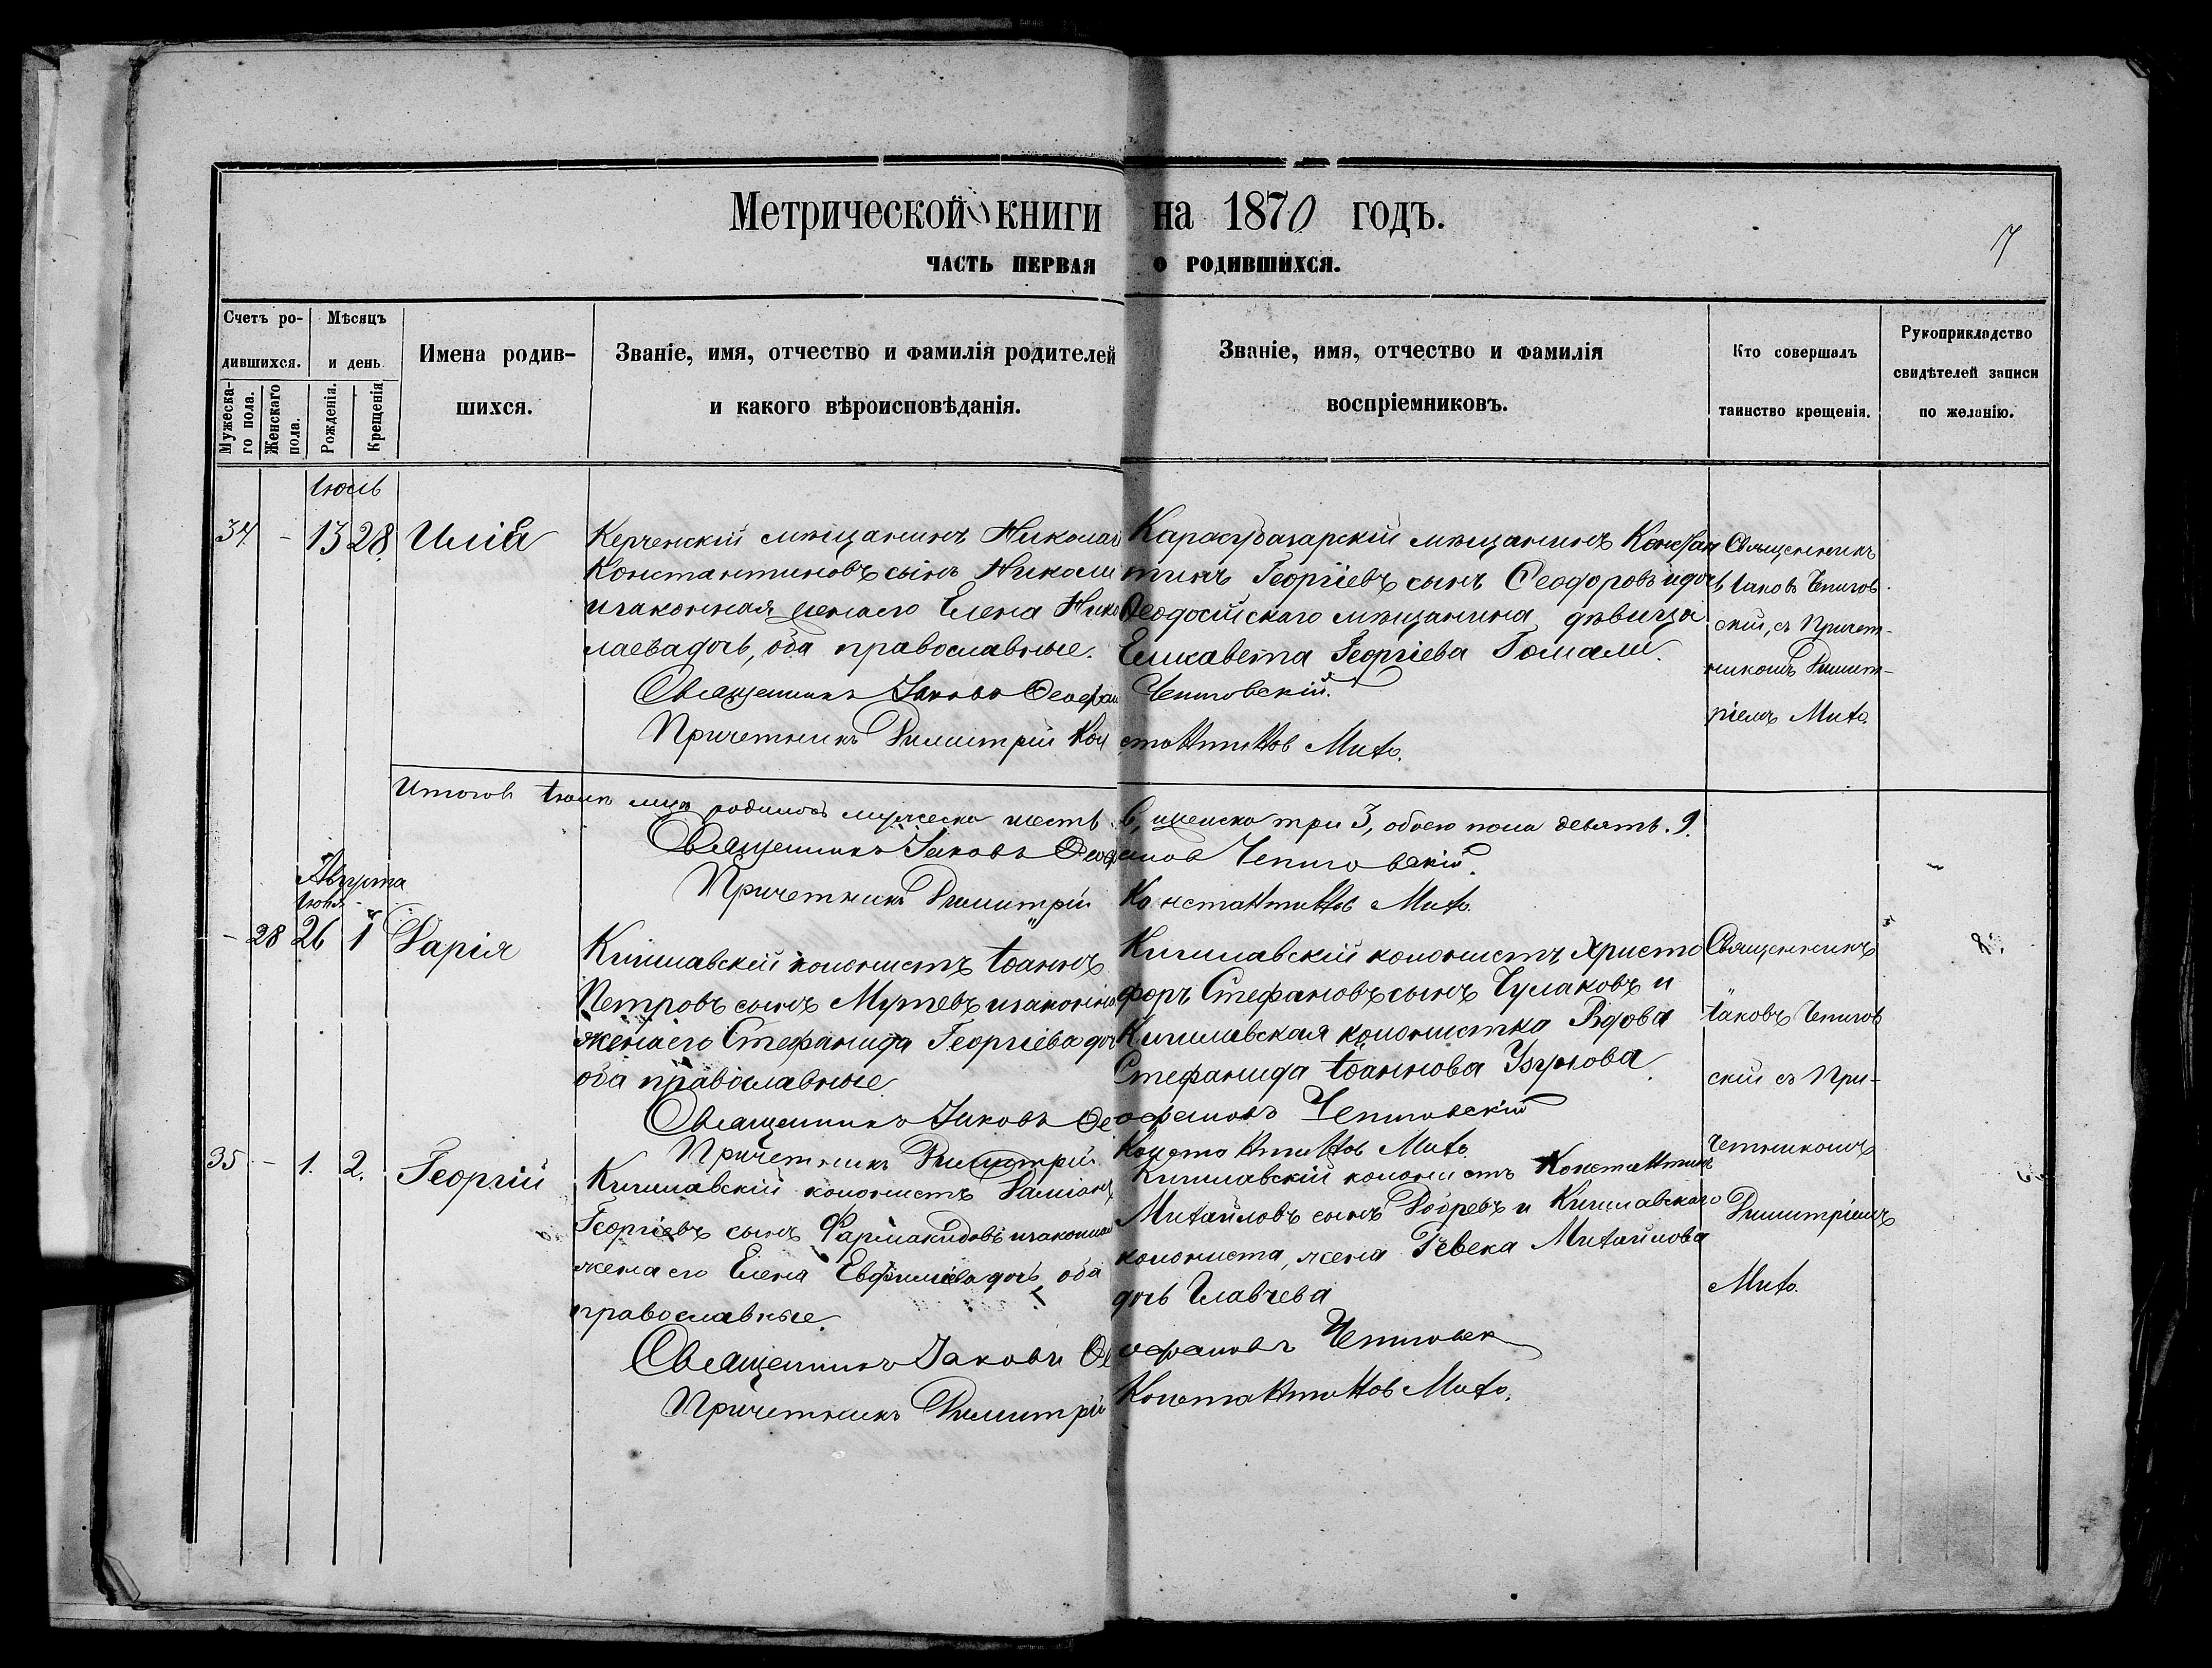 Метрической книги на 1870 годъ.
17
ЧАСТЬ ПЕРВАЯ О РОДИВШИХСЯ.
Счетъ родившихся.
Мужескаго пола.
Женскаго пола.
Мѣсяцъ и день
Рожденія.
Крещенія
Имена родившихся.
Званіе, имя, отчество и фамилія родителей
и какого вѣроисповѣданія.
Званіе, имя, отчество и фамилія
воспріемниковъ.
Кто совершалъ
таинство крещенія.
Рукоприкладство
свидѣтелей записи
по желанію.
Іюль
34 - 13 28 Илія
Керченскій мѣщанинъ Николай
Константиновъ сынъ Николи
и законная жена его Елена Нико
лаева дочь, оба православные.
Священникъ Іаковъ Феофан
Причетникъ Димитрій Кон
Карасубазарскій мѣщанинъ Констан
тинъ Георгіевъ сынъ Феодоровъ и дочь
Феодосійскаго мѣщанина дѣвица
Елисавета Георгіева Гомали.
Чепиговскій.
стантинов Мито.
Священникъ
Іаковъ Чепигов
скій, съ Причет-
никомъ Димит-
ріемъ Мито.
Итого въ Іюлѣ мцѣ родилось мужеска шесть 6, женска три 3, обоего пола девять. 9.
Священникъ Іаковъ Феофанов Чепиговскій.
Причетникъ Димитрій Константинов Мито.
Августа
Іюля
- 28 26 1 Дарія
Кишлавскій колонистъ Іоаннъ
Петровъ сынъ Мутевъ и законная
жена его Стефанида Георгіева дочь
оба православные
Священникъ Іаковъ Фе
Причетникъ Димитрій
Кишлавскій колонистъ Христо
форъ Стефановъ сынъ Чулаковъ и
Кишлавская колонистка Вдова
Стефанида Іоаннова Узунова
офановъ Чепиговскій
Константинов Мито.
Священникъ
Іаковъ Чепигов
скій съ При-
четникомъ
Димитріемъ
Мито.
35 - 1. 2. Георгій
Кишлавскій колонистъ Даміанъ
Георгіевъ сынъ Фармакидовъ и законная
жена его Елена Евфиміева дочь, оба
православные.
Священникъ Іаковъ Фе
Причетникъ Димитрій
Кишлавскій колонистъ Константинъ
Михайловъ сынъ Добревъ и Кишлавскаго
колониста, жена Ревека Михайлова
дочь Главчева
офановъ Чепиговск
Константинов Мито.